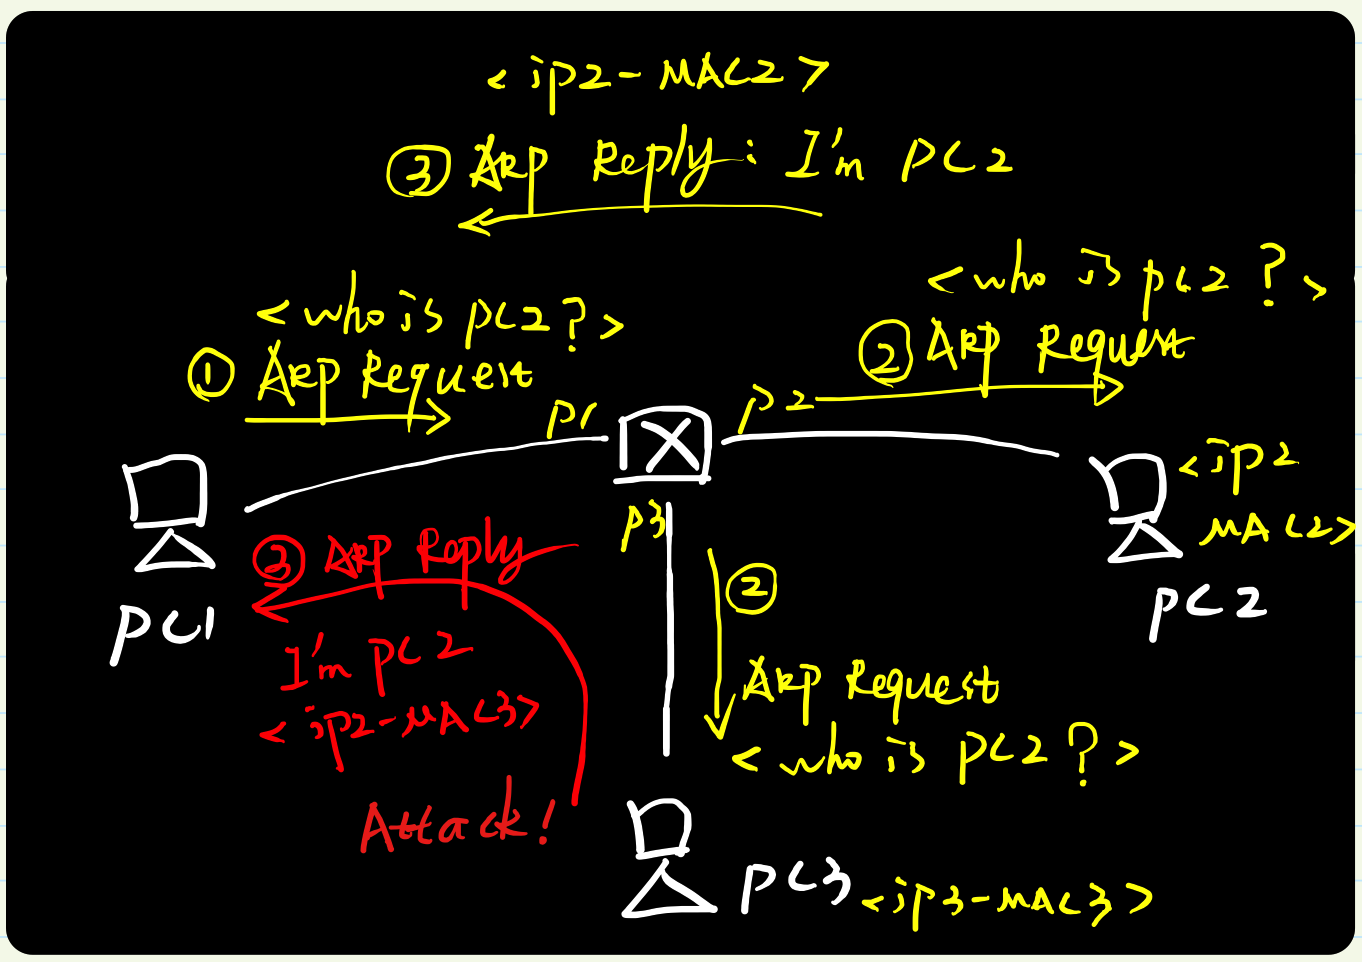 <ip2-MAC2>
③ ARP Reply: I'm PC2
<who is PC2?>
① ARP Request
<who is PC2?>
② ARP Request
P1
P2
P3
<ip2
MAC2>
PC1
PC2
③ ARP Reply
I'm PC2
<ip2-MAC3>
Attack!
②
ARP Request
<who is PC2?>
PC3 <ip3-MAC3>